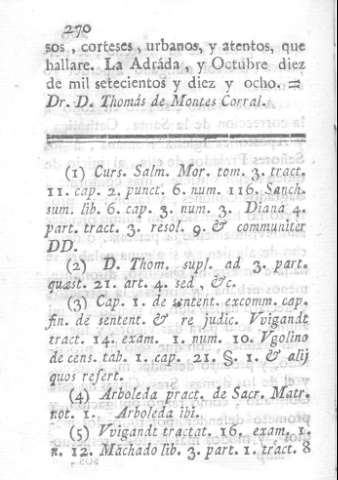 270
sos , corteses , urbanos, y atentos, que
hallare. La Adráda , y Octubre diez
de mil setecientos y diez y ocho. =
Dr. D. Thomás de Montes Corral.
(1) Curs. Salm. Mor. tom. 3. tract.
11. cap. 2. punct. 6. num. 116. Sanch.
sum. lib. 6. cap. 3. num. 3. Diana 4.
part. tract. 3. resol. 9. & communiter
DD.
(2) D. Thom. supl. ad 3. part.
quæst. 21. art. 4. sed , &c.
(3) Cap. 1. de sentent. excomm. cap.
fin. de sentent. & re judic. Vvigandt
tract. 14. exam. 1. num. 10. Vgolino
de cens. tab. 1. cap. 21. §. 1. & alij
quos refert.
(4) Arboleda pract. de Sacr. Matr.
not. 1. Arboleda ibi.
(5) Vvigandt tractat. 16. exam. 1.
n. 12. Machado lib. 3. part. 1. tract. 8